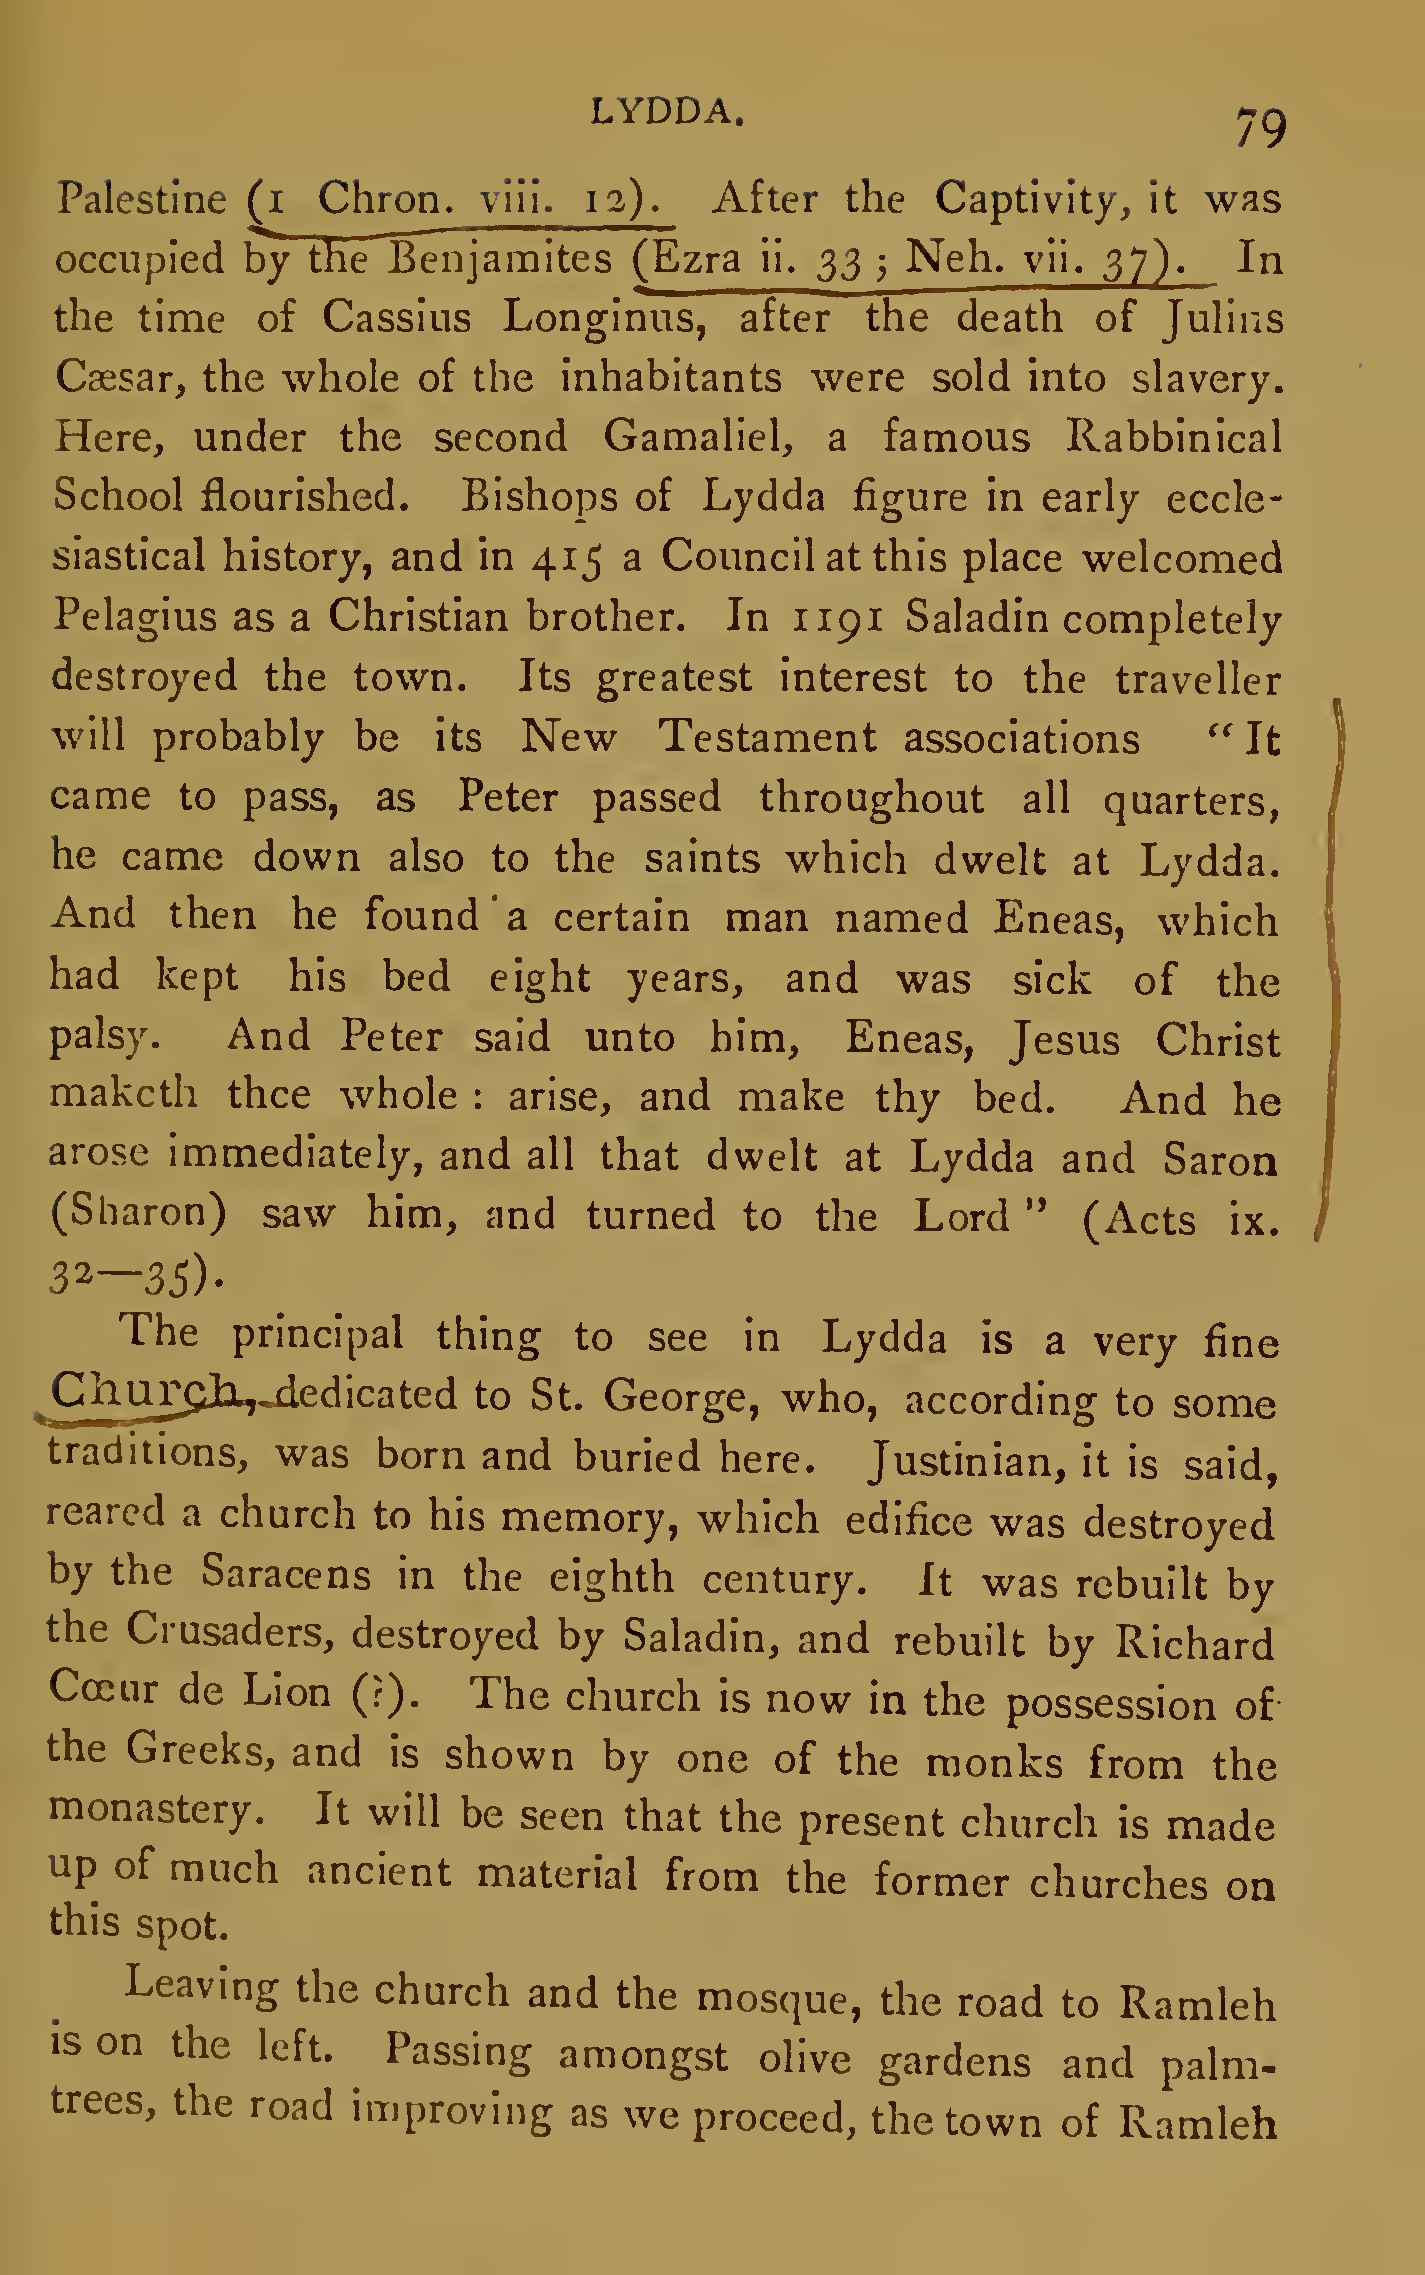 LYDDA.
79
Palestine (1 Chron. viii. 12). After the Captivity, it was
occupied by the Benjamites (Ezra ii. 33 ; Neh. vii. 37). In
the time of Cassius Longinus, after the death of Julius
Cæsar, the whole of the inhabitants were sold into slavery.
Here, under the second Gamaliel, a famous Rabbinical
School flourished. Bishops of Lydda figure in early eccle-
siastical history, and in 415 a Council at this place welcomed
Pelagius as a Christian brother. In 1191 Saladin completely
destroyed the town. Its greatest interest to the traveller
will probably be its New Testament associations “ It
came to pass, as Peter passed throughout all quarters,
he came down also to the saints which dwelt at Lydda.
And then he found a certain man named Eneas, which
had kept his bed eight years, and was sick of the
palsy. And Peter said unto him, Eneas, Jesus Christ
maketh thee whole : arise, and make thy bed. And he
arose immediately, and all that dwelt at Lydda and Saron
(Sharon) saw him, and turned to the Lord ” (Acts ix.
32—35).
The principal thing to see in Lydda is a very fine
Church, dedicated to St. George, who, according to some
traditions, was born and buried here. Justinian, it is said,
reared a church to his memory, which edifice was destroyed
by the Saracens in the eighth century. It was rebuilt by
the Crusaders, destroyed by Saladin, and rebuilt by Richard
Cœur de Lion (?). The church is now in the possession of
the Greeks, and is shown by one of the monks from the
monastery. It will be seen that the present church is made
up of much ancient material from the former churches on
this spot.
Leaving the church and the mosque, the road to Ramleh
is on the left. Passing amongst olive gardens and palm-
trees, the road improving as we proceed, the town of Ramleh